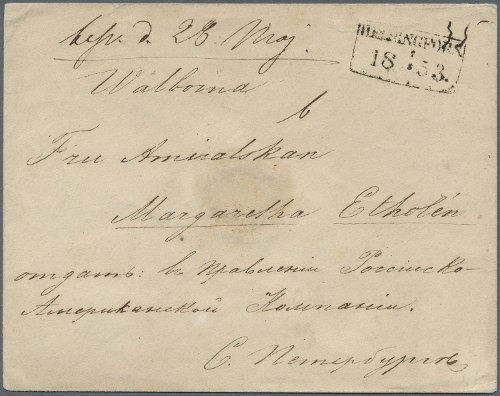 besv. d. 28. Maj.
HELSINGFORS
18 53.
Walborna
Fru Amiralskan
Margaretha Etholén
отдать: въ правленіи Россійско-
Американской Компаніи.
С. Петербургъ